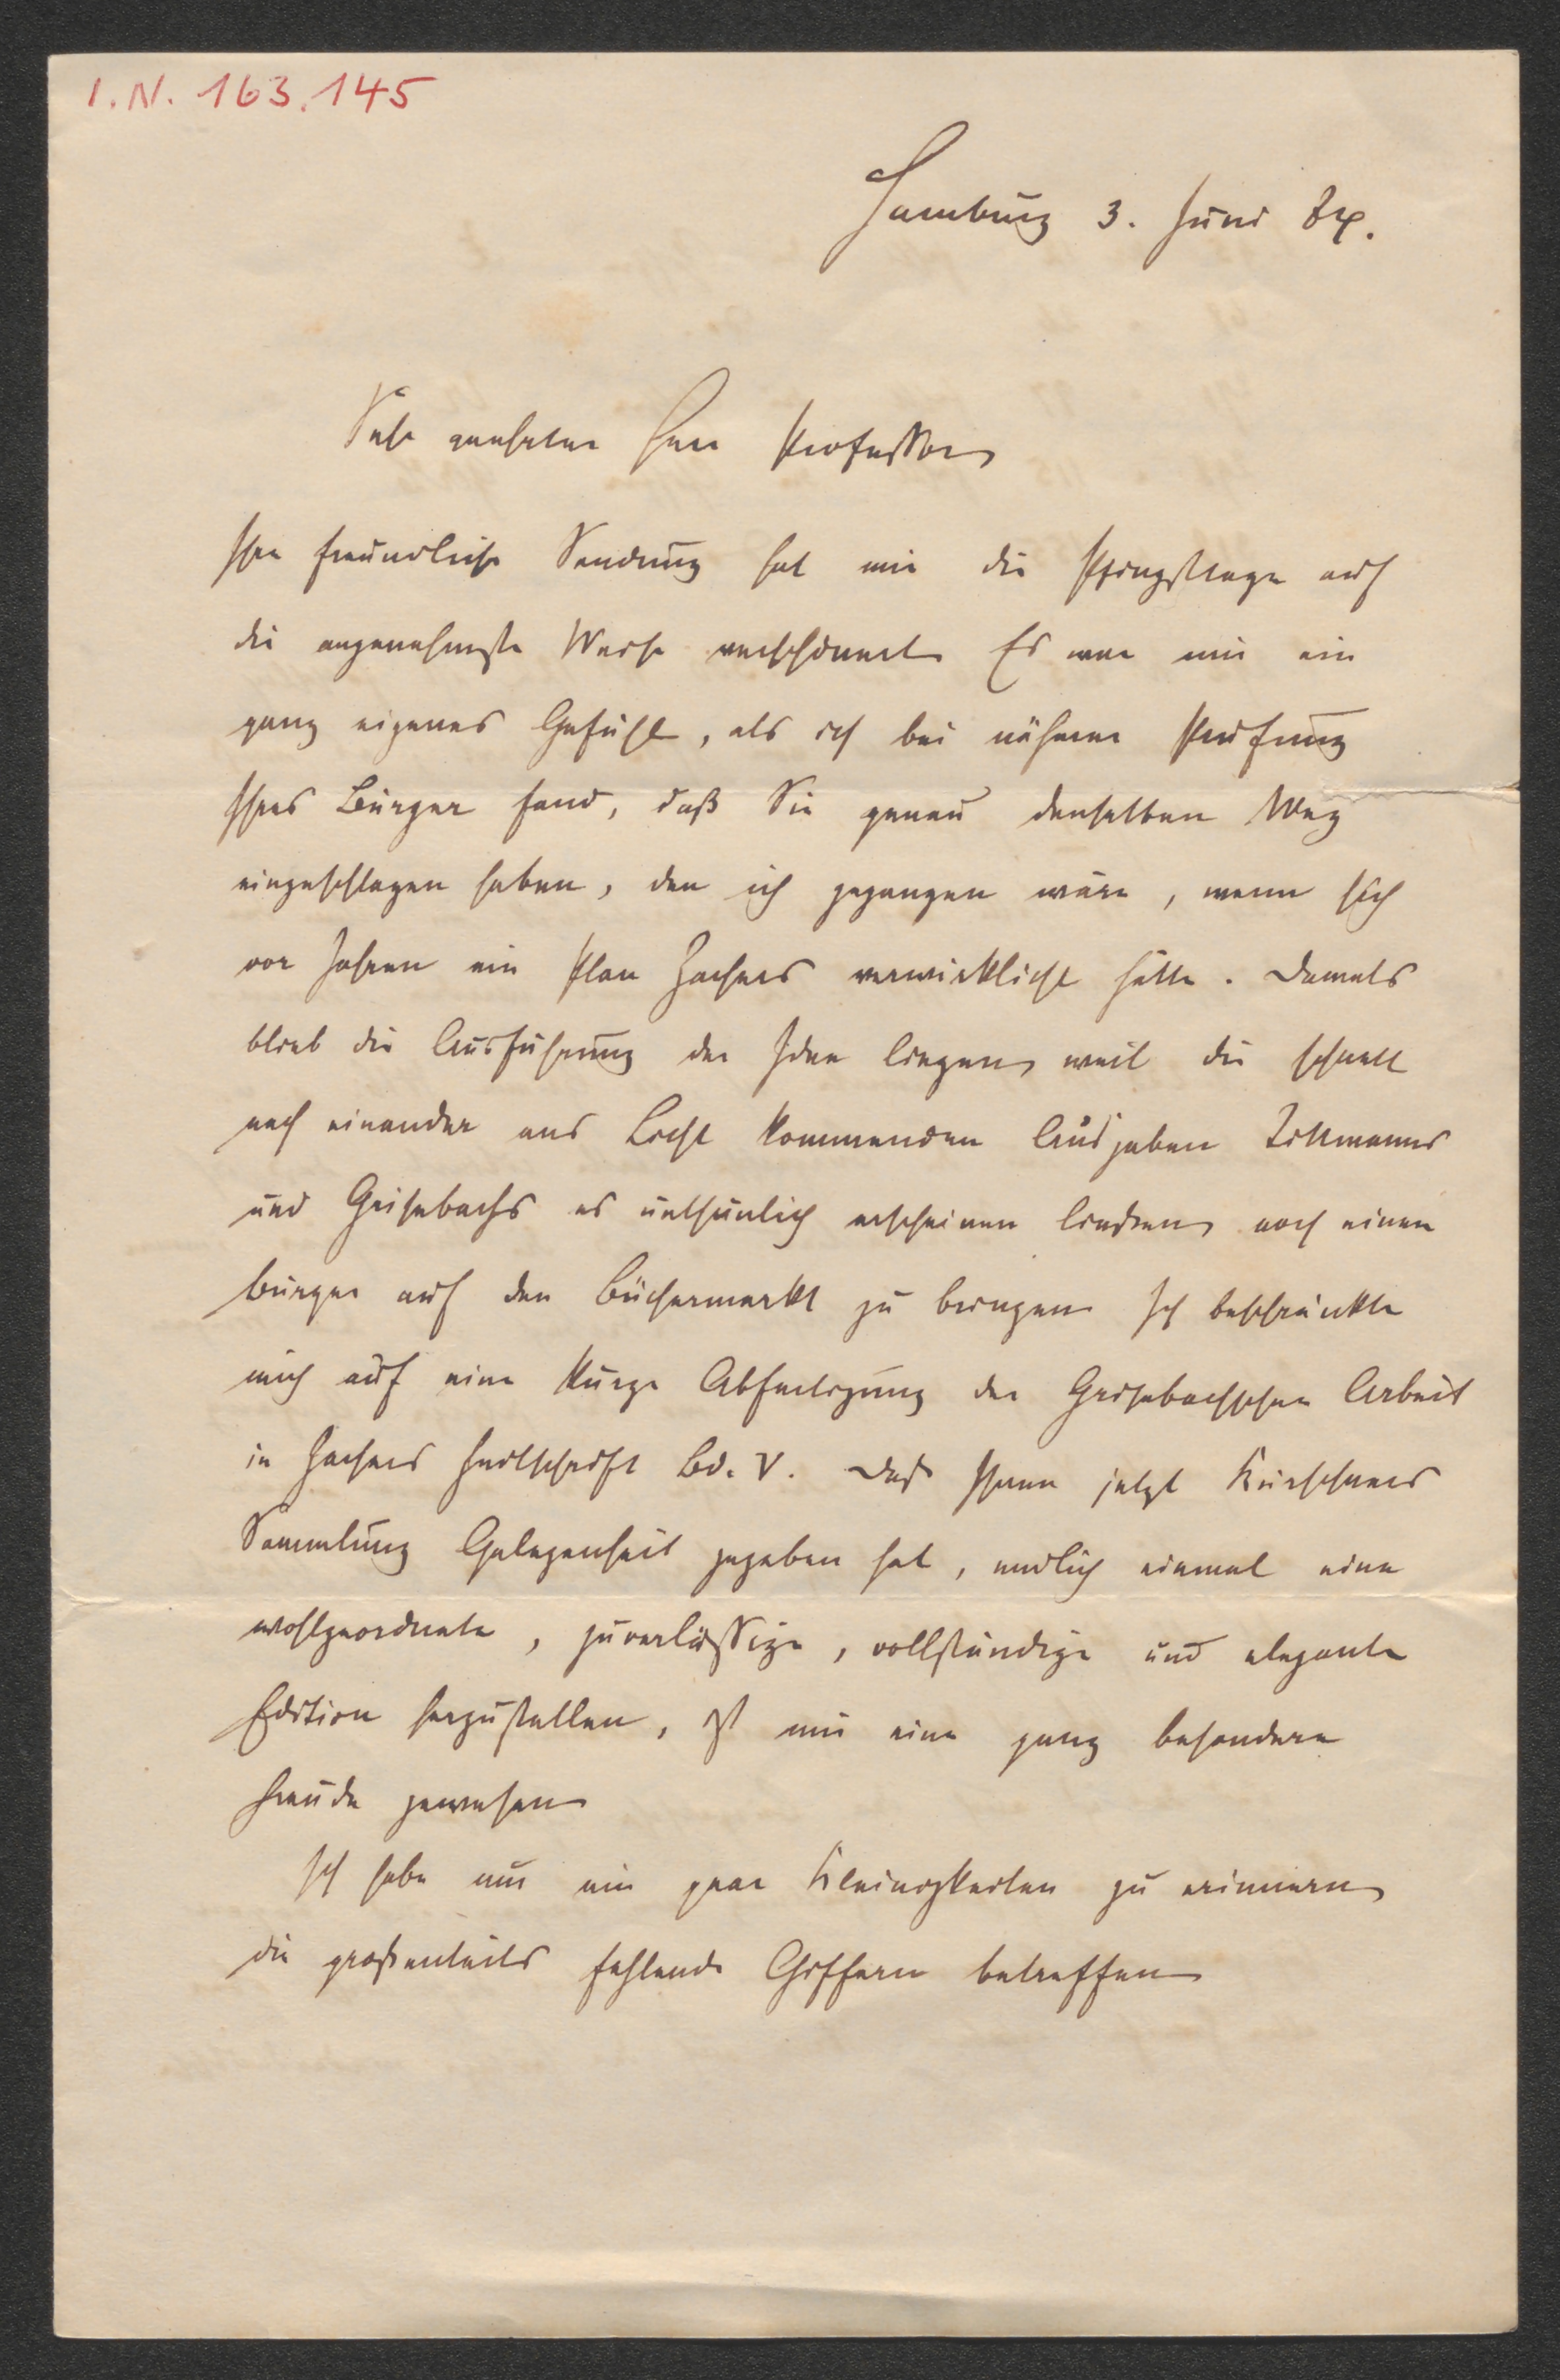 I. N. 163.145
Hamburg 3. Juni 84.
Sehr geehrter Herr Professor
Ihre freundliche Sendung hat mir die Pfingsttage auf
die angenehmste Weise verschönert. Es war mir ein
ganz eigenes Gefühl, als ich bei näherer Prüfung
Ihres Bürger fand, daß Sie genau denselben Weg
eingeschlagen haben, den ich gegangen wäre, wenn sich
vor Jahren ein Plan Zachers verwirklicht hätte. Damals
blieb die Ausführung der Idee liegen, weil die schnell
nach einander ans Licht kommenden Ausgaben Tittmanns
und Grisebachs es unthunlich erscheinen ließen, noch einen
Bürger auf den Büchermarkt zu bringen. Ich beschränkte
mich auf eine kurze Abfertigung der Grisebachschen Arbeit
in Zachers Zeitschrift Bd. V. Daß Ihnen jetzt Kürschners
Sammlung Gelegenheit gegeben hat, endlich einmal eine
wohlgeordnete, zuverlässige, vollständige und elegante
Edition herzustellen, ist mir eine ganz besondere
Freude gewesen.
Ich habe nur ein paar Kleinigkeiten zu erinnern,
die großenteils fehlende Chiffern betreffen.